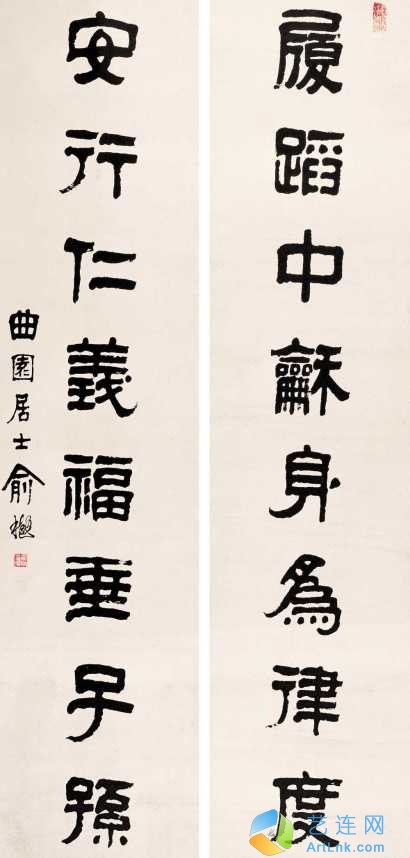 履蹈中龢身為律度
安行仁義福垂子孫
曲園居士俞樾
艺连网
ArtLnk.com